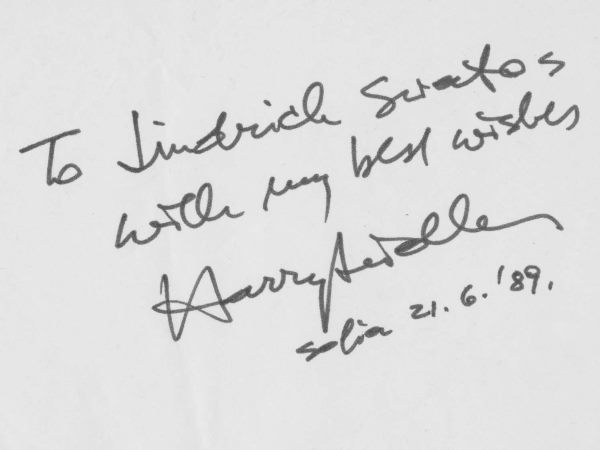 To Jindrich Svatos
with my best wishes
Harry Seidler
Sofia 21.6.'89.